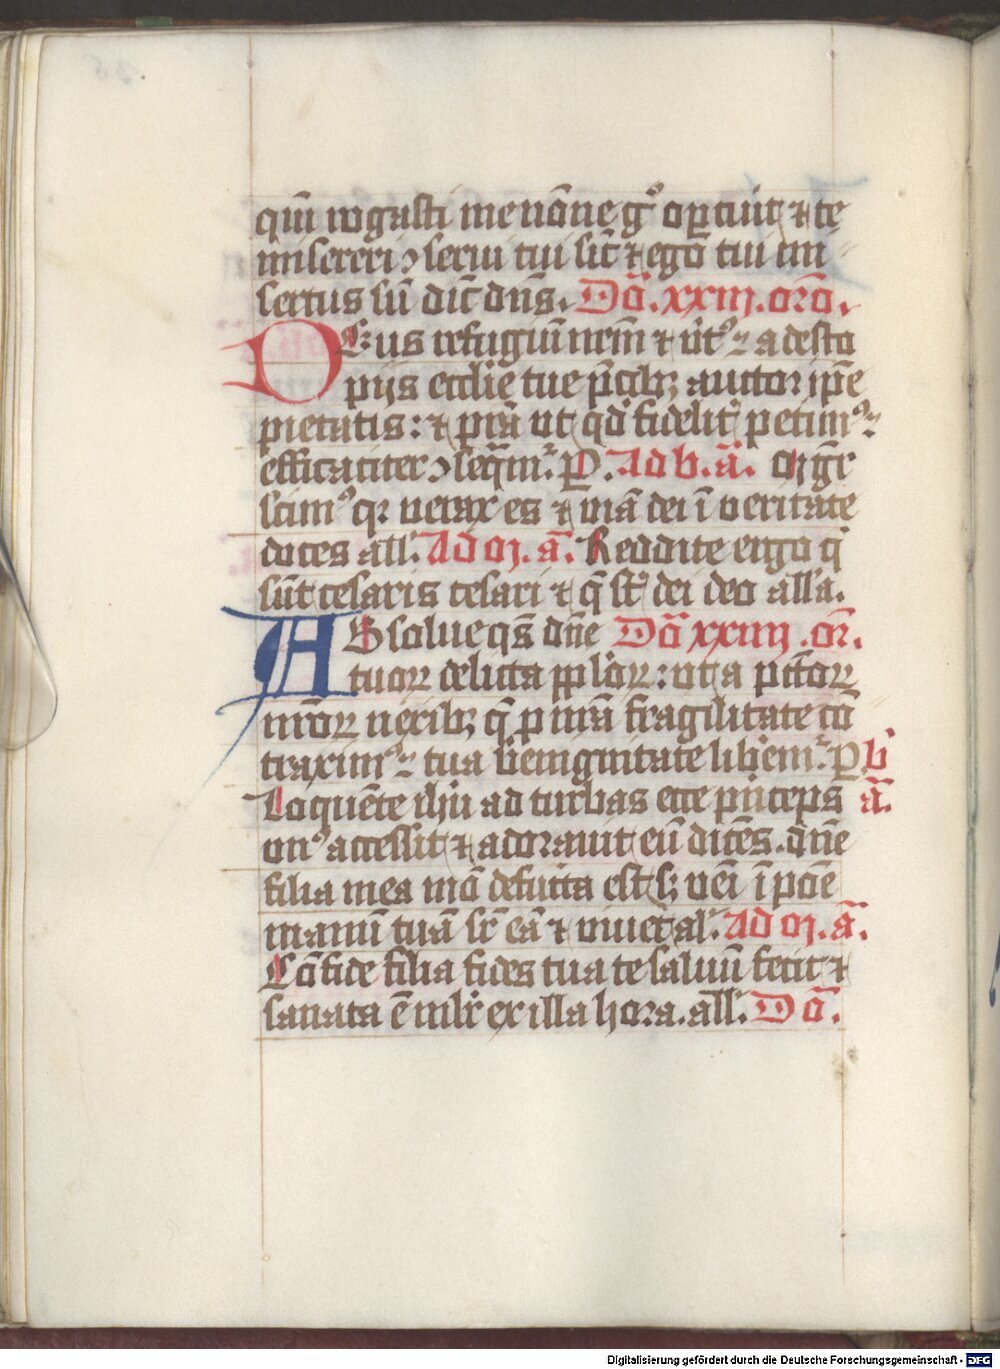 qm̄ rogasti me nōne gͦ oportuit ⁊ te
misereri ɔserui tui sic̄ ⁊ ego tui mi
sertus sū dic̄ dn̄s. Dō. xxiij. orō.
Deus refugiū nr̄m ⁊ v̓tꝰ adesto
pijs eccl̄ie tue p̄cibꝫ auctor ip̄e
pietatis : ⁊ p̄sta vt qd̓ fidelit̓ petimꝰ
efficaciter ɔseq̄m̄ᷣ. ꝑ. Ad b. ā. Mgr̄
scimꝰ qꝛ verax es ⁊ viā dei ī veritate
doces all̓. Ad m. ā. Reddite ergo q̄
sūt cesaris cesari ⁊ q̄ st̄ dei deo all̓a.
Absolue qs̄ dn̄e Dō xxiiij. or̄.
tuoꝝ delicta ppl̓oꝝ : vt a pctōꝝ
nr̄oꝝ nexibꝫ q̄ p nr̄a fragilitate cō
traximꝰ tua benignitate libem̄ᷣ. ꝑ b̓
Loquēte ihū ad turbas ecce prīceps ā.
vnꝰ accessit ⁊ adorauit eū dicēs. dn̄e
filia mea mō defūcta est sꝫ veī īpōe
manū tuā sr̄ eā ⁊ viuet al̓. Ad m. ā.
Cōfide filia fides tua te saluū fecit ⁊
sanata ē mlr̓ ex illa hora. all̓. Dō.
Digitalisierung gefördert durch die Deutsche Forschungsgemeinschaft - DFG